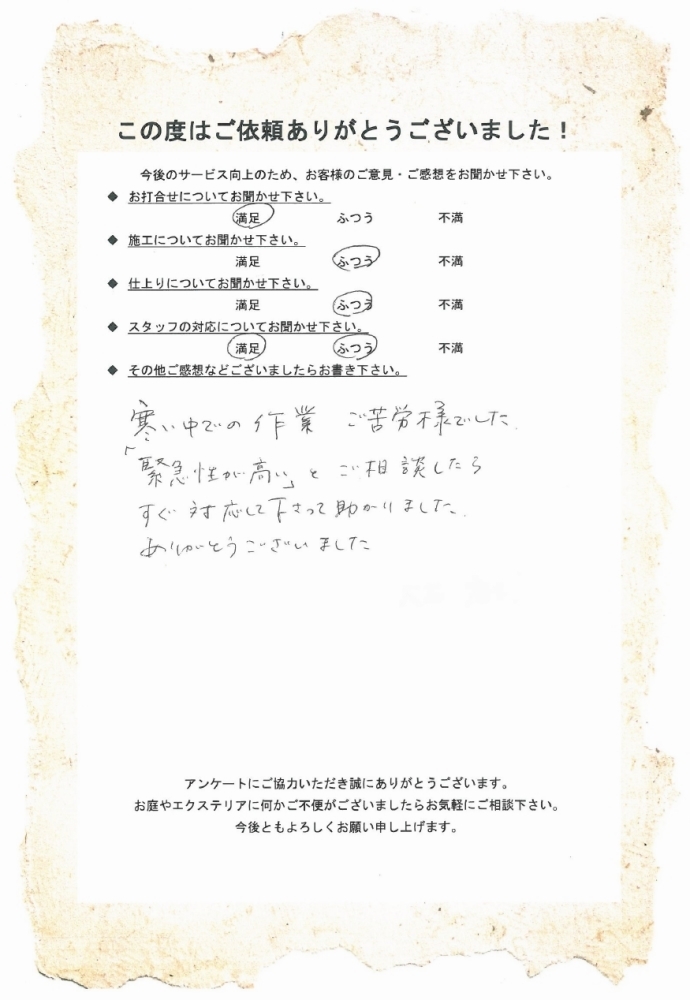 この度はご依頼ありがとうございました！
今後のサービス向上のため、お客様のご意見・ご感想をお聞かせ下さい。
◆ お打合せについてお聞かせ下さい。
満足 ふつう 不満
◆ 施工についてお聞かせ下さい。
満足 ふつう 不満
◆ 仕上りについてお聞かせ下さい。
満足 ふつう 不満
◆ スタッフの対応についてお聞かせ下さい。
満足 ふつう 不満
◆ その他ご感想などございましたらお書き下さい。
寒い中での作業 ご苦労様でした.
「緊急性が高い」と ご相談したら
すぐ対応して下さって助かりました.
ありがとうございました
アンケートにご協力いただき誠にありがとうございます。
お庭やエクステリアに何かご不便がございましたらお気軽にご相談下さい。
今後ともよろしくお願い申し上げます。